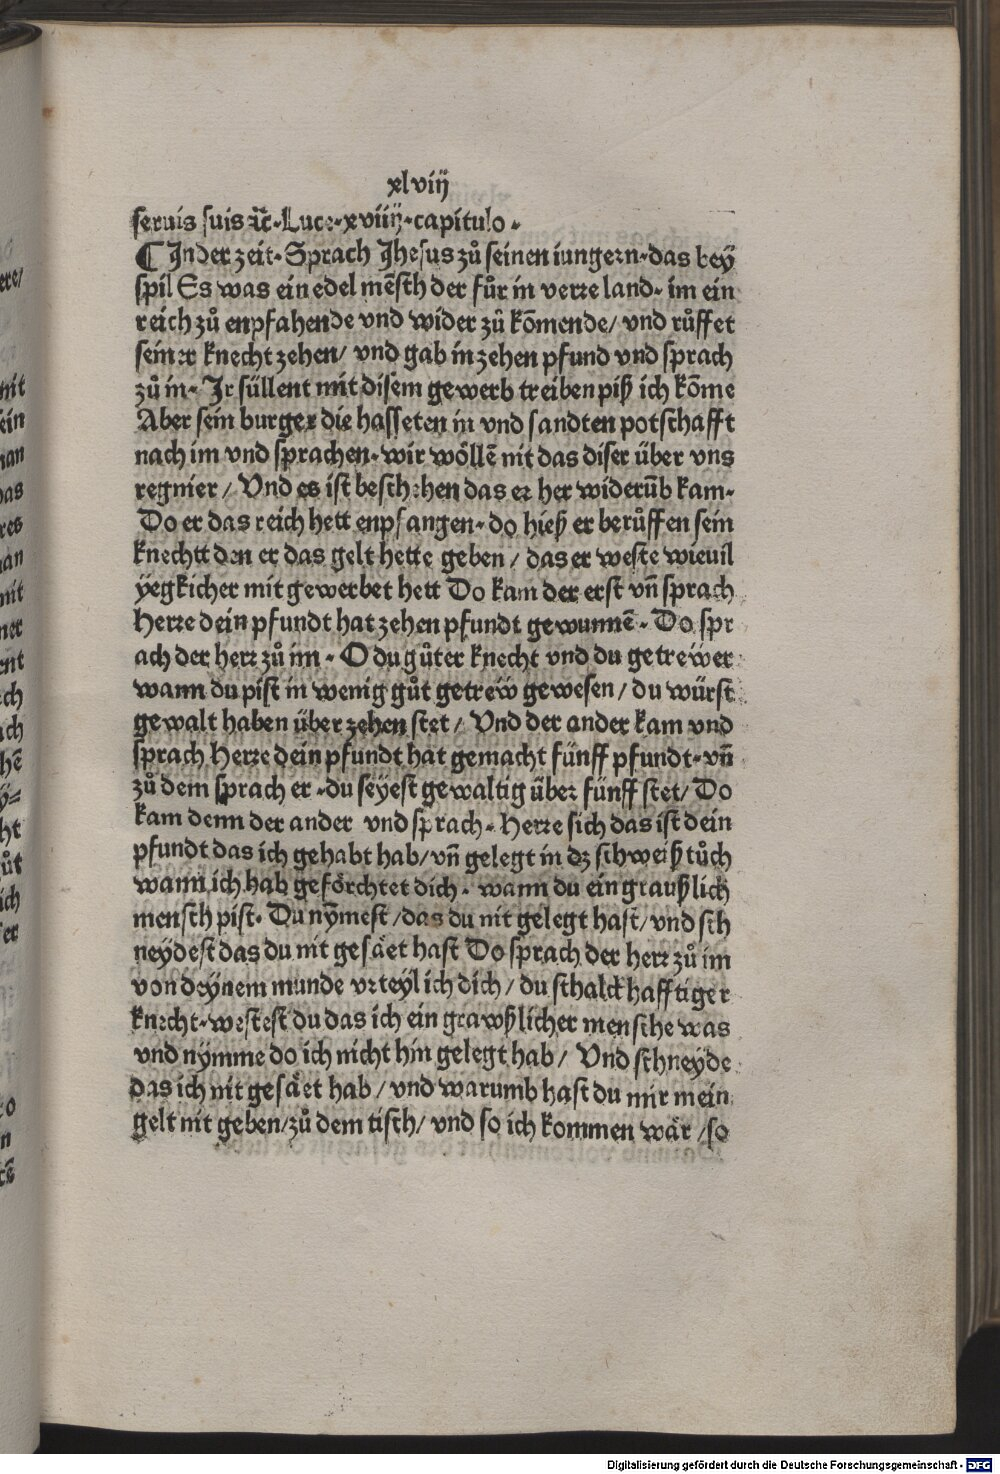 xlviij
seruis suis ꝛc̃. Luce. xviiij. capitulo.
¶ In der zeit. Sprach Jhesus zů seinen iungern. das bey
spil Es was ein edel mẽsch der fůr in verre land. im ein
reich zů enpfahende vnd wider zů kõmende/ vnd růffet
seiner knecht zehen/ vnd gab in zehen pfund vnd sprach
zů in. Ir süllent mit disem gewerb treiben piß ich kõme
Aber sein burger die hasseten in vnd sandten potschafft
nach im vnd sprachen. wir wöllẽ nit das diser über vns
regnier/ Vnd es ist beschehen das er her widerũb kam.
Do er das reich hett enpfangen. do hieß er berůffen sein
knechtt den er das gelt hette geben/ das er weste wieuil
yegkicher mit gewerbet hett Do kam der erst vñ sprach
Herre dein pfundt hat zehen pfundt gewunnẽ. Do spr
ach der herr zů im. O du gůter knecht vnd du getrewer
wann du pist in wenig gůt getrew gewesen/ du würst
gewalt haben über zehen stet/ Vnd der ander kam vnd
sprach Herre dein pfundt hat gemacht fünff pfundt. vñ
zů dem sprach er. du seyest gewaltig über fünff stet/ Do
kam denn der ander vnd sprach. Herre sich das ist dein
pfundt das ich gehabt hab/ vñ gelegt in dz schweiß tůch
wann ich hab geförchtet dich. wann du ein graußlich
mensch pist. Du nỹmest/ das du nit gelegt hast/ vnd sch
neydest das du nit gesäet hast Do sprach der herr zů im
von deynem munde vrteyl ich dich/ du schalckhafftiger
knecht. westest du das ich ein grawßlicher mensche was
vnd nymme do ich nicht hin gelegt hab/ Vnd schneyde
das ich nit gesäet hab/ vnd warumb hast du mir mein
gelt nit geben/ zů dem tisch/ vnd so ich kommen wär/ so
ere/
nit
ein
nan
has
res
nan
nit
ner
ent
ch
ch
hẽ
y=
ht
ůt
ich
er
n
Digitalisierung gefördert durch die Deutsche Forschungsgemeinschaft - DFG